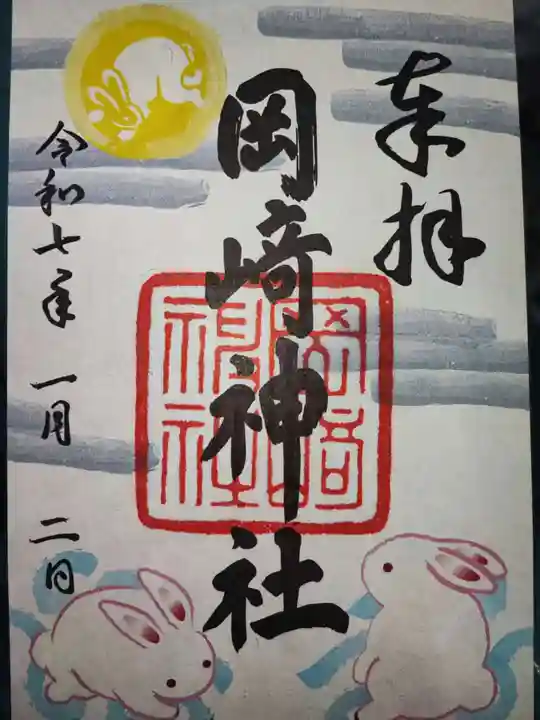 奉拝
岡崎神社
岡崎神社
令和七年 一月 二日